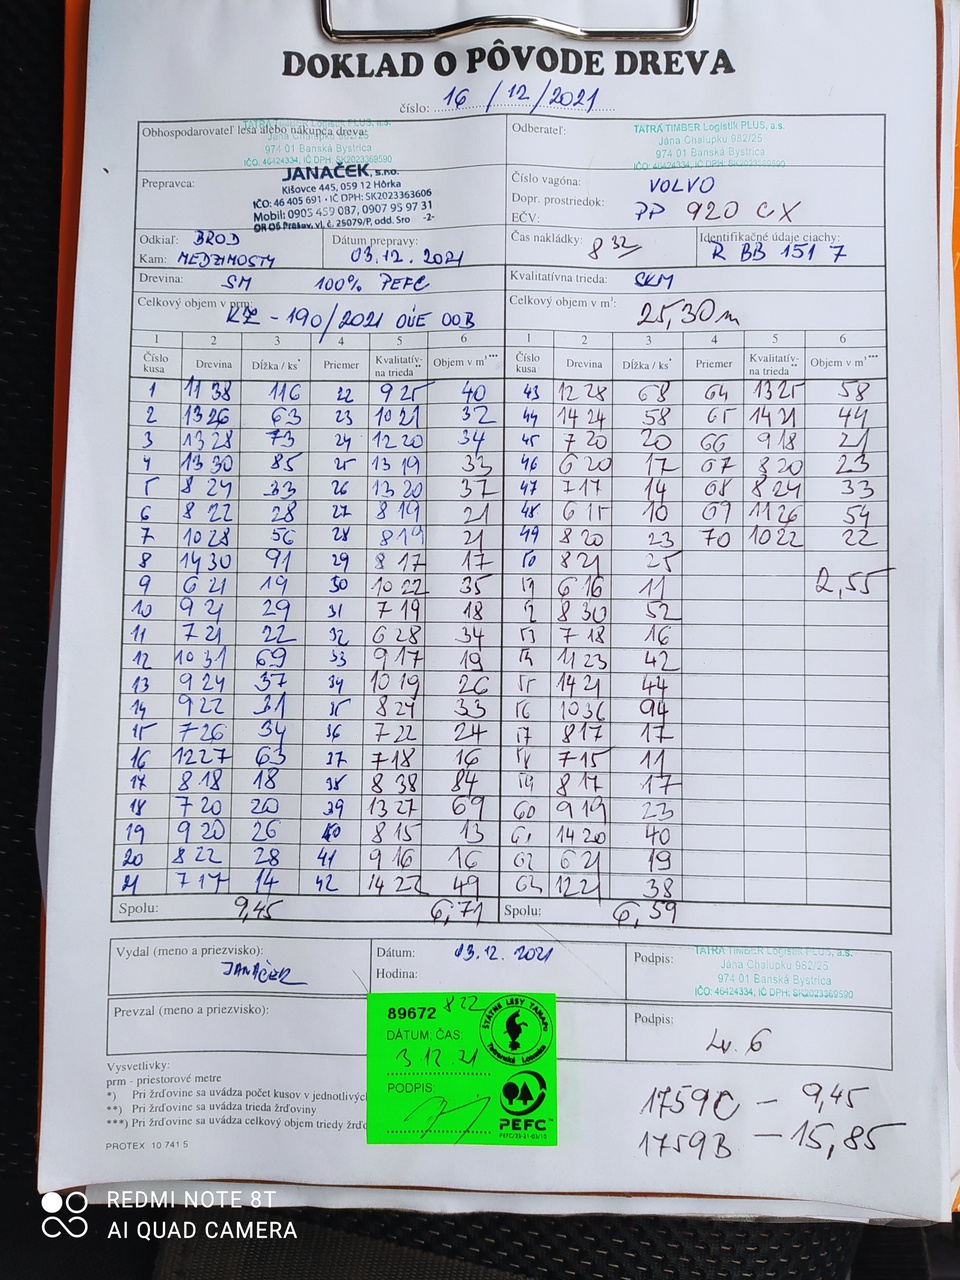 DOKLAD O PÔVODE DREVA
číslo: 16/12/2021
Obhospodarovateľ lesa alebo nákupca dreva:
TATRA TIMBER Logistik PLUS, a.s.
Jána Chalupku 982/25
974 01 Banská Bystrica
IČO: 46424334, IČ DPH: SK2023369590
Odberateľ:
TATRA TIMBER Logistik PLUS, a.s.
Jána Chalupku 982/25
974 01 Banská Bystrica
IČO: 46424334, IČ DPH: SK2023369590
Prepravca:
JANAČEK, s.r.o.
Kišovce 445, 059 12 Hôrka
IČO: 46 405 691 • IČ DPH: SK2023363606
Mobil: 0905 459 087, 0907 95 97 31
OR OS Prešov, vl. č. 25079/P, odd. Sro -2-
Číslo vagóna: VOLVO
Dopr. prostriedok:
EČV: PP 920 CX
Odkiaľ: BROD
Kam: MEDZIMOSTY
Dátum prepravy:
03.12.2021
Čas nakládky:
8 32
Identifikačné údaje ciachy:
R BB 151 7
Drevina: SM 100% PEFC
Kvalitatívna trieda: SKM
Celkový objem v prm:
KZ - 190/2021 OÚE OOB
Celkový objem v m³:
25,30 m
1 2 3 4 5 6 1 2 3 4 5 6
Číslo kusa Drevina Dĺžka / ks* Priemer Kvalitatívna trieda** Objem v m³*** Číslo kusa Drevina Dĺžka / ks* Priemer Kvalitatívna trieda** Objem v m³***
1 11 38 116 22 9 25 40 43 12 28 68 64 13 25 58
2 13 26 63 23 10 21 32 44 14 24 58 65 14 21 44
3 13 28 73 24 12 20 34 45 7 20 20 66 9 18 21
4 13 30 85 25 13 19 33 46 6 20 17 67 8 20 23
5 8 24 33 26 13 20 37 47 7 17 14 68 8 24 33
6 8 22 28 27 8 19 21 48 6 15 10 69 11 26 54
7 10 28 56 28 8 19 21 49 8 20 23 70 10 22 22
8 14 30 91 29 8 17 17 50 8 21 25
9 6 21 19 30 10 22 35 51 6 16 11 2,55
10 9 21 29 31 7 19 18 52 8 30 52
11 7 21 22 32 6 28 34 53 7 18 16
12 10 31 69 33 9 17 19 54 11 23 42
13 9 24 37 34 10 19 26 55 14 21 44
14 9 22 31 35 8 24 33 56 10 36 94
15 7 26 34 36 7 22 24 57 8 17 17
16 12 27 63 37 7 18 16 58 7 15 11
17 8 18 18 38 8 38 84 59 8 17 17
18 7 20 20 39 13 27 69 60 9 19 23
19 9 20 26 40 8 15 13 61 14 20 40
20 8 22 28 41 9 16 16 62 6 21 19
21 7 17 14 42 14 22 49 63 12 21 38
Spolu: 9,45 6,71 Spolu: 6,59
Vydal (meno a priezvisko):
JANAČEK
Dátum: 03.12.2021
Hodina:
Podpis:
TATRA TIMBER Logistik PLUS, a.s.
Jána Chalupku 982/25
974 01 Banská Bystrica
IČO: 46424334, IČ DPH: SK2023369590
Prevzal (meno a priezvisko):
Podpis:
Lv. 6
89672 8 22
DÁTUM, ČAS:
3 12 21
PODPIS:
ŠTÁTNE LESY TANAPU
Tatranská Lomnica
PEFC™
PEFC/23-21-03/10
Vysvetlivky:
prm - priestorové metre
*) Pri žrďovine sa uvádza počet kusov v jednotlivých
**) Pri žrďovine sa uvádza trieda žrďoviny
***) Pri žrďovine sa uvádza celkový objem triedy
PROTEX 10 741 5
1759C - 9,45
1759B - 15,85
REDMI NOTE 8T
AI QUAD CAMERA